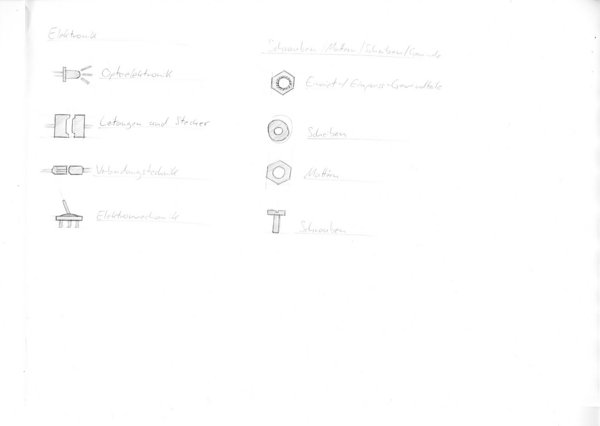 Elektronik
Optoelektronik
Leitungen und Stecker
Verbindungstechnik
Elektromechanik
Schrauben/Muttern/Scheiben/Gewinde
Einniet-/Einpress-Gewindteile
Scheiben
Muttern
Schrauben